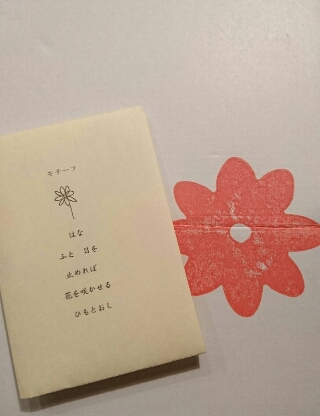 モチーフ
はな
ふと 目を
止めれば
花を咲かせる
ひもとおし